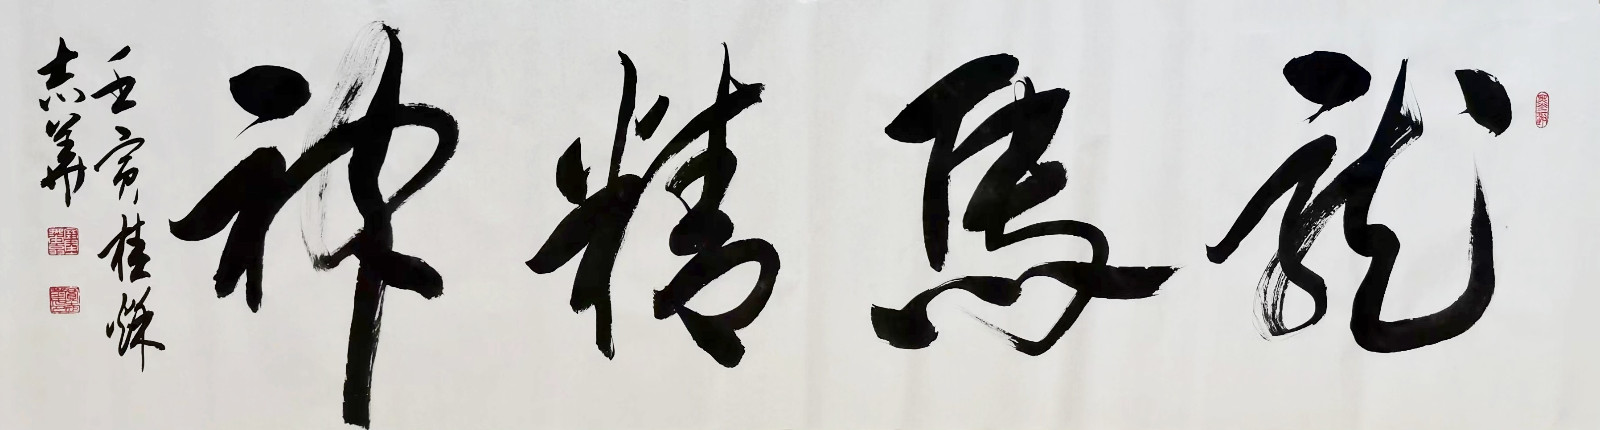 龍馬精神
壬寅桂秌
志華